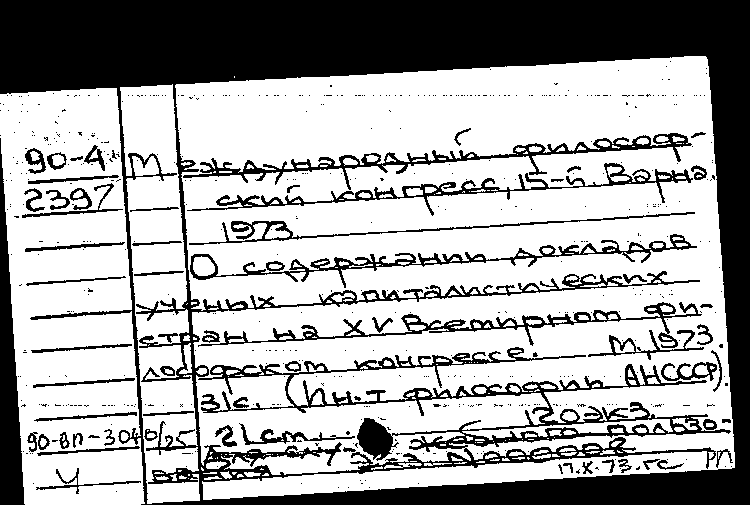 90-4 Международный философ-
2397 ский конгресс, 15-й. Варна.
1973.
О содержании докладов
ученых капиталистических
стран на XV Всемирном фи-
лософском конгрессе. М., 1973.
31с. (Ин-т философии АНСССР).
120экз.
90-вп-3040/25 21см. .
Для служебного пользо-
вания. Экз. N000008
Ч 17.X.73.гс РП